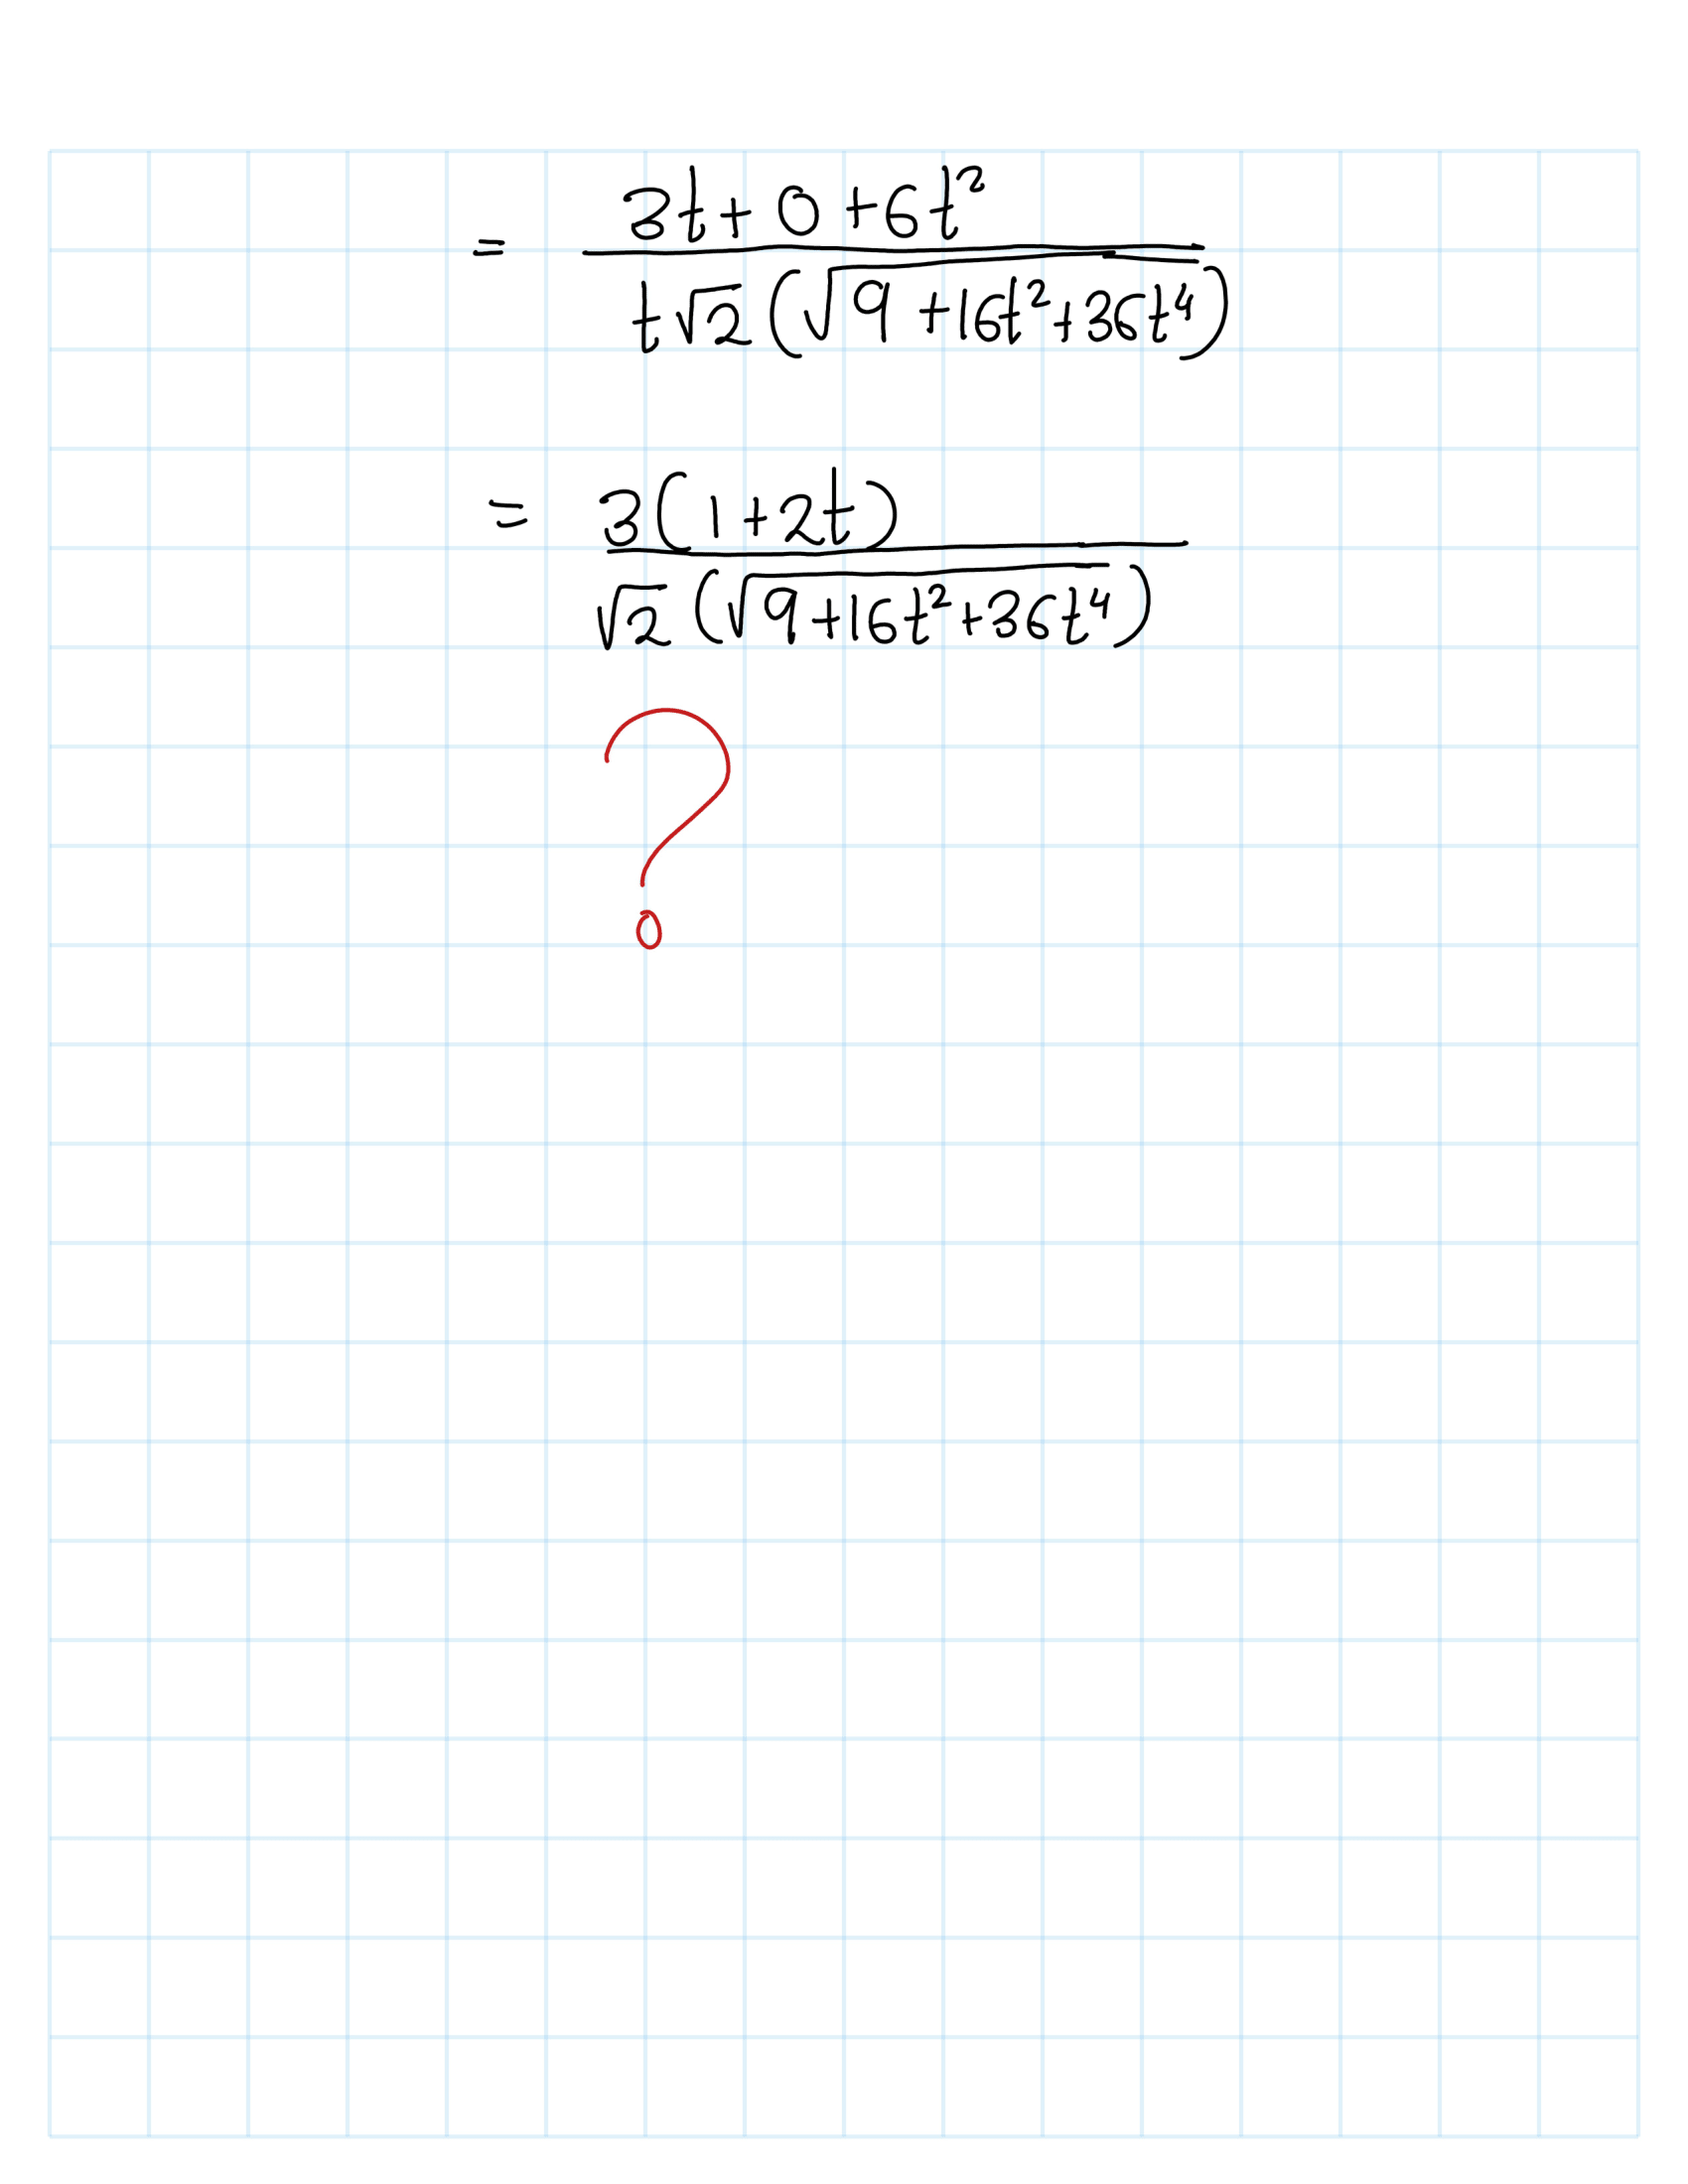 = (3t + 0 + 6t²) / (t√2 (√(9 + 16t² + 36t⁴)))
= 3(1 + 2t) / (√2 (√(9 + 16t² + 36t⁴)))
?